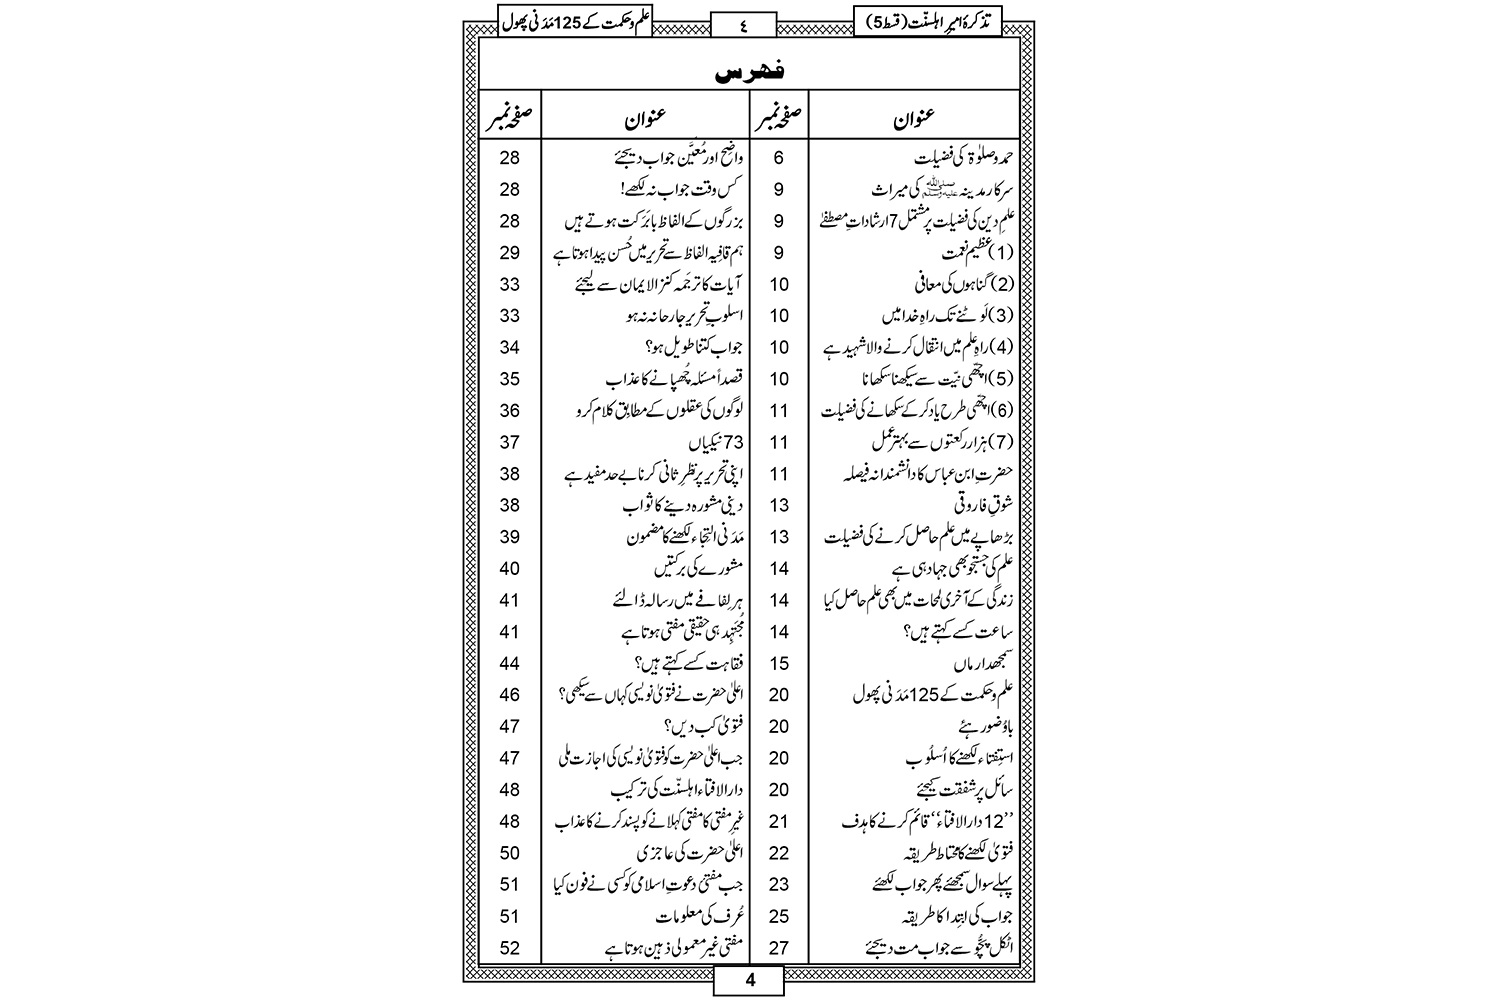 تذکرۂ امیرِ اہلسنّت (قسط 5)
٤
علم و حکمت کے 125 مَدَنی پھول
فہرس
عنوان صفحہ نمبر عنوان صفحہ نمبر
حمد و صلوٰۃ کی فضیلت 6 واضِح اور مُعَیَّن جواب دیجئے 28
سرکارِ مدینہ ﷺ کی میراث 9 کس وقت جواب نہ لکھے! 28
علمِ دین کی فضیلت پر مشتمل 7 ارشاداتِ مصطفٰے 9 بزرگوں کے الفاظ بابَرَکت ہوتے ہیں 28
(1) عظیم نعمت 9 ہم قافیہ الفاظ سے تحریر میں حُسن پیدا ہوتا ہے 29
(2) گناہوں کی معافی 10 آیات کا ترجَمہ کنزالایمان سے لیجئے 33
(3) لَوٹنے تک راہِ خدا میں 10 اسلوبِ تحریر جارحانہ نہ ہو 33
(4) راہِ علم میں انتقال کرنے والا شہید ہے 10 جواب کتنا طویل ہو؟ 34
(5) اچّھی نیّت سے سیکھنا سکھانا 10 قصداً مسئلہ چُھپانے کا عذاب 35
(6) اچّھی طرح یاد کر کے سکھانے کی فضیلت 11 لوگوں کی عقلوں کے مطابِق کلام کرو 36
(7) ہزار رکعتوں سے بہتر عمل 11 73 نیکیاں 37
حضرتِ ابن عباس کا دانشمندانہ فیصلہ 11 اپنی تحریر پر نظرِ ثانی کرنا بے حد مفید ہے 38
شوقِ فاروقی 13 دینی مشورہ دینے کا ثواب 38
بڑھاپے میں علم حاصل کرنے کی فضیلت 13 مَدَنی التجاء لکھنے کا مضمون 39
علم کی جستجو بھی جہاد ہی ہے 14 مشورے کی برکتیں 40
زندگی کے آخری لمحات میں بھی علم حاصل کیا 14 ہر لِفافے میں رسالہ ڈالئے 41
ساعت کسے کہتے ہیں؟ 14 مُجتَہِد ہی حقیقی مفتی ہوتا ہے 41
سمجھدار ماں 15 فقاہت کسے کہتے ہیں؟ 44
علم و حکمت کے 125 مَدَنی پھول 20 اعلیٰ حضرت نے فتویٰ نویسی کہاں سے سیکھی؟ 46
باوُضو رہئے 20 فتویٰ کب دیں؟ 47
استِفتاء لکھنے کا اُسلُوب 20 جب اعلیٰ حضرت کو فتویٰ نویسی کی اجازت ملی 47
سائل پر شفقت کیجئے 20 دارالافتاء اہلسنّت کی ترکیب 48
’’12 دارالافتاء‘‘ قائم کرنے کا ہدف 21 غیرِ مفتی کا مفتی کہلانے کو پسند کرنے کا عذاب 48
فتویٰ لکھنے کا محتاط طریقہ 22 اعلیٰ حضرت کی عاجزی 50
پہلے سوال سمجھئے پھر جواب لکھئے 23 جب مفتیٔ دعوتِ اسلامی کو کسی نے فون کیا 51
جواب کی ابتِدا کا طریقہ 25 عُرف کی معلومات 51
اٹکل پچُّو سے جواب مت دیجئے 27 مفتی غیر معمولی ذہین ہوتا ہے 52
4